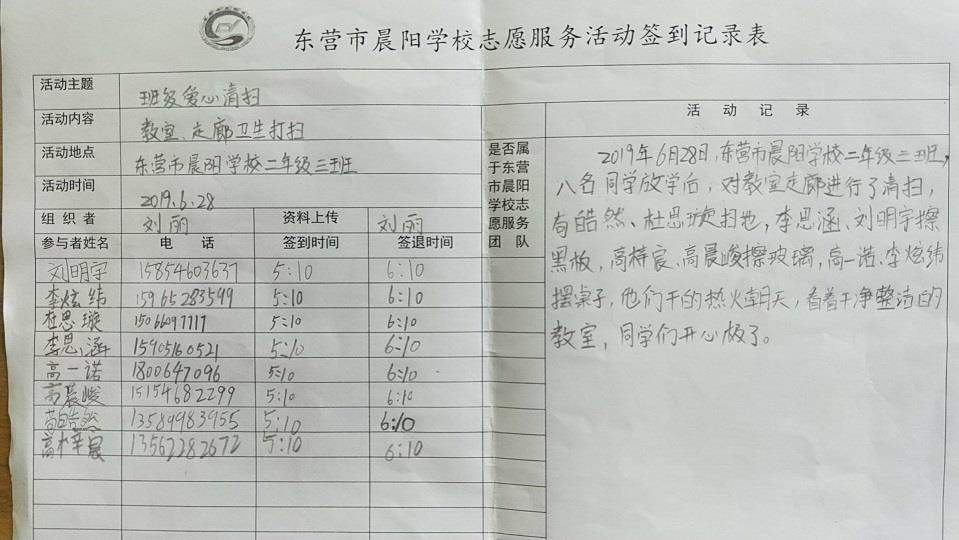 东营市晨阳学校志愿服务活动签到记录表
活动主题 班级爱心清扫
活动内容 教室、走廊卫生打扫
活动地点 东营市晨阳学校二年级三班
活动时间 2019.6.28
组织者 刘丽 资料上传 刘丽
参与者姓名 电话 签到时间 签退时间
刘明宇 15854603637 5:10 6:10
李炫纬 15965283599 5:10 6:10
杜思璇 15066097717 5:10 6:10
李思涵 15905160521 5:10 6:10
高一诺 1800647096 5:10 6:10
高晨峻 15154682299 5:10 6:10
苟皓然 13589983955 5:10 6:10
高梓宸 13562282672 5:10 6:10
是否属
于东营
市晨阳
学校志
愿服务
团队
活动记录
2019年6月28日,东营市晨阳学校二年级三班,
八名同学放学后,对教室走廊进行了清扫,
苟皓然、杜思璇扫地,李思涵、刘明宇擦
黑板,高梓宸、高晨峻擦玻璃,高一诺、李炫纬
摆桌子,他们干的热火朝天,看着干净整洁的
教室,同学们开心极了。